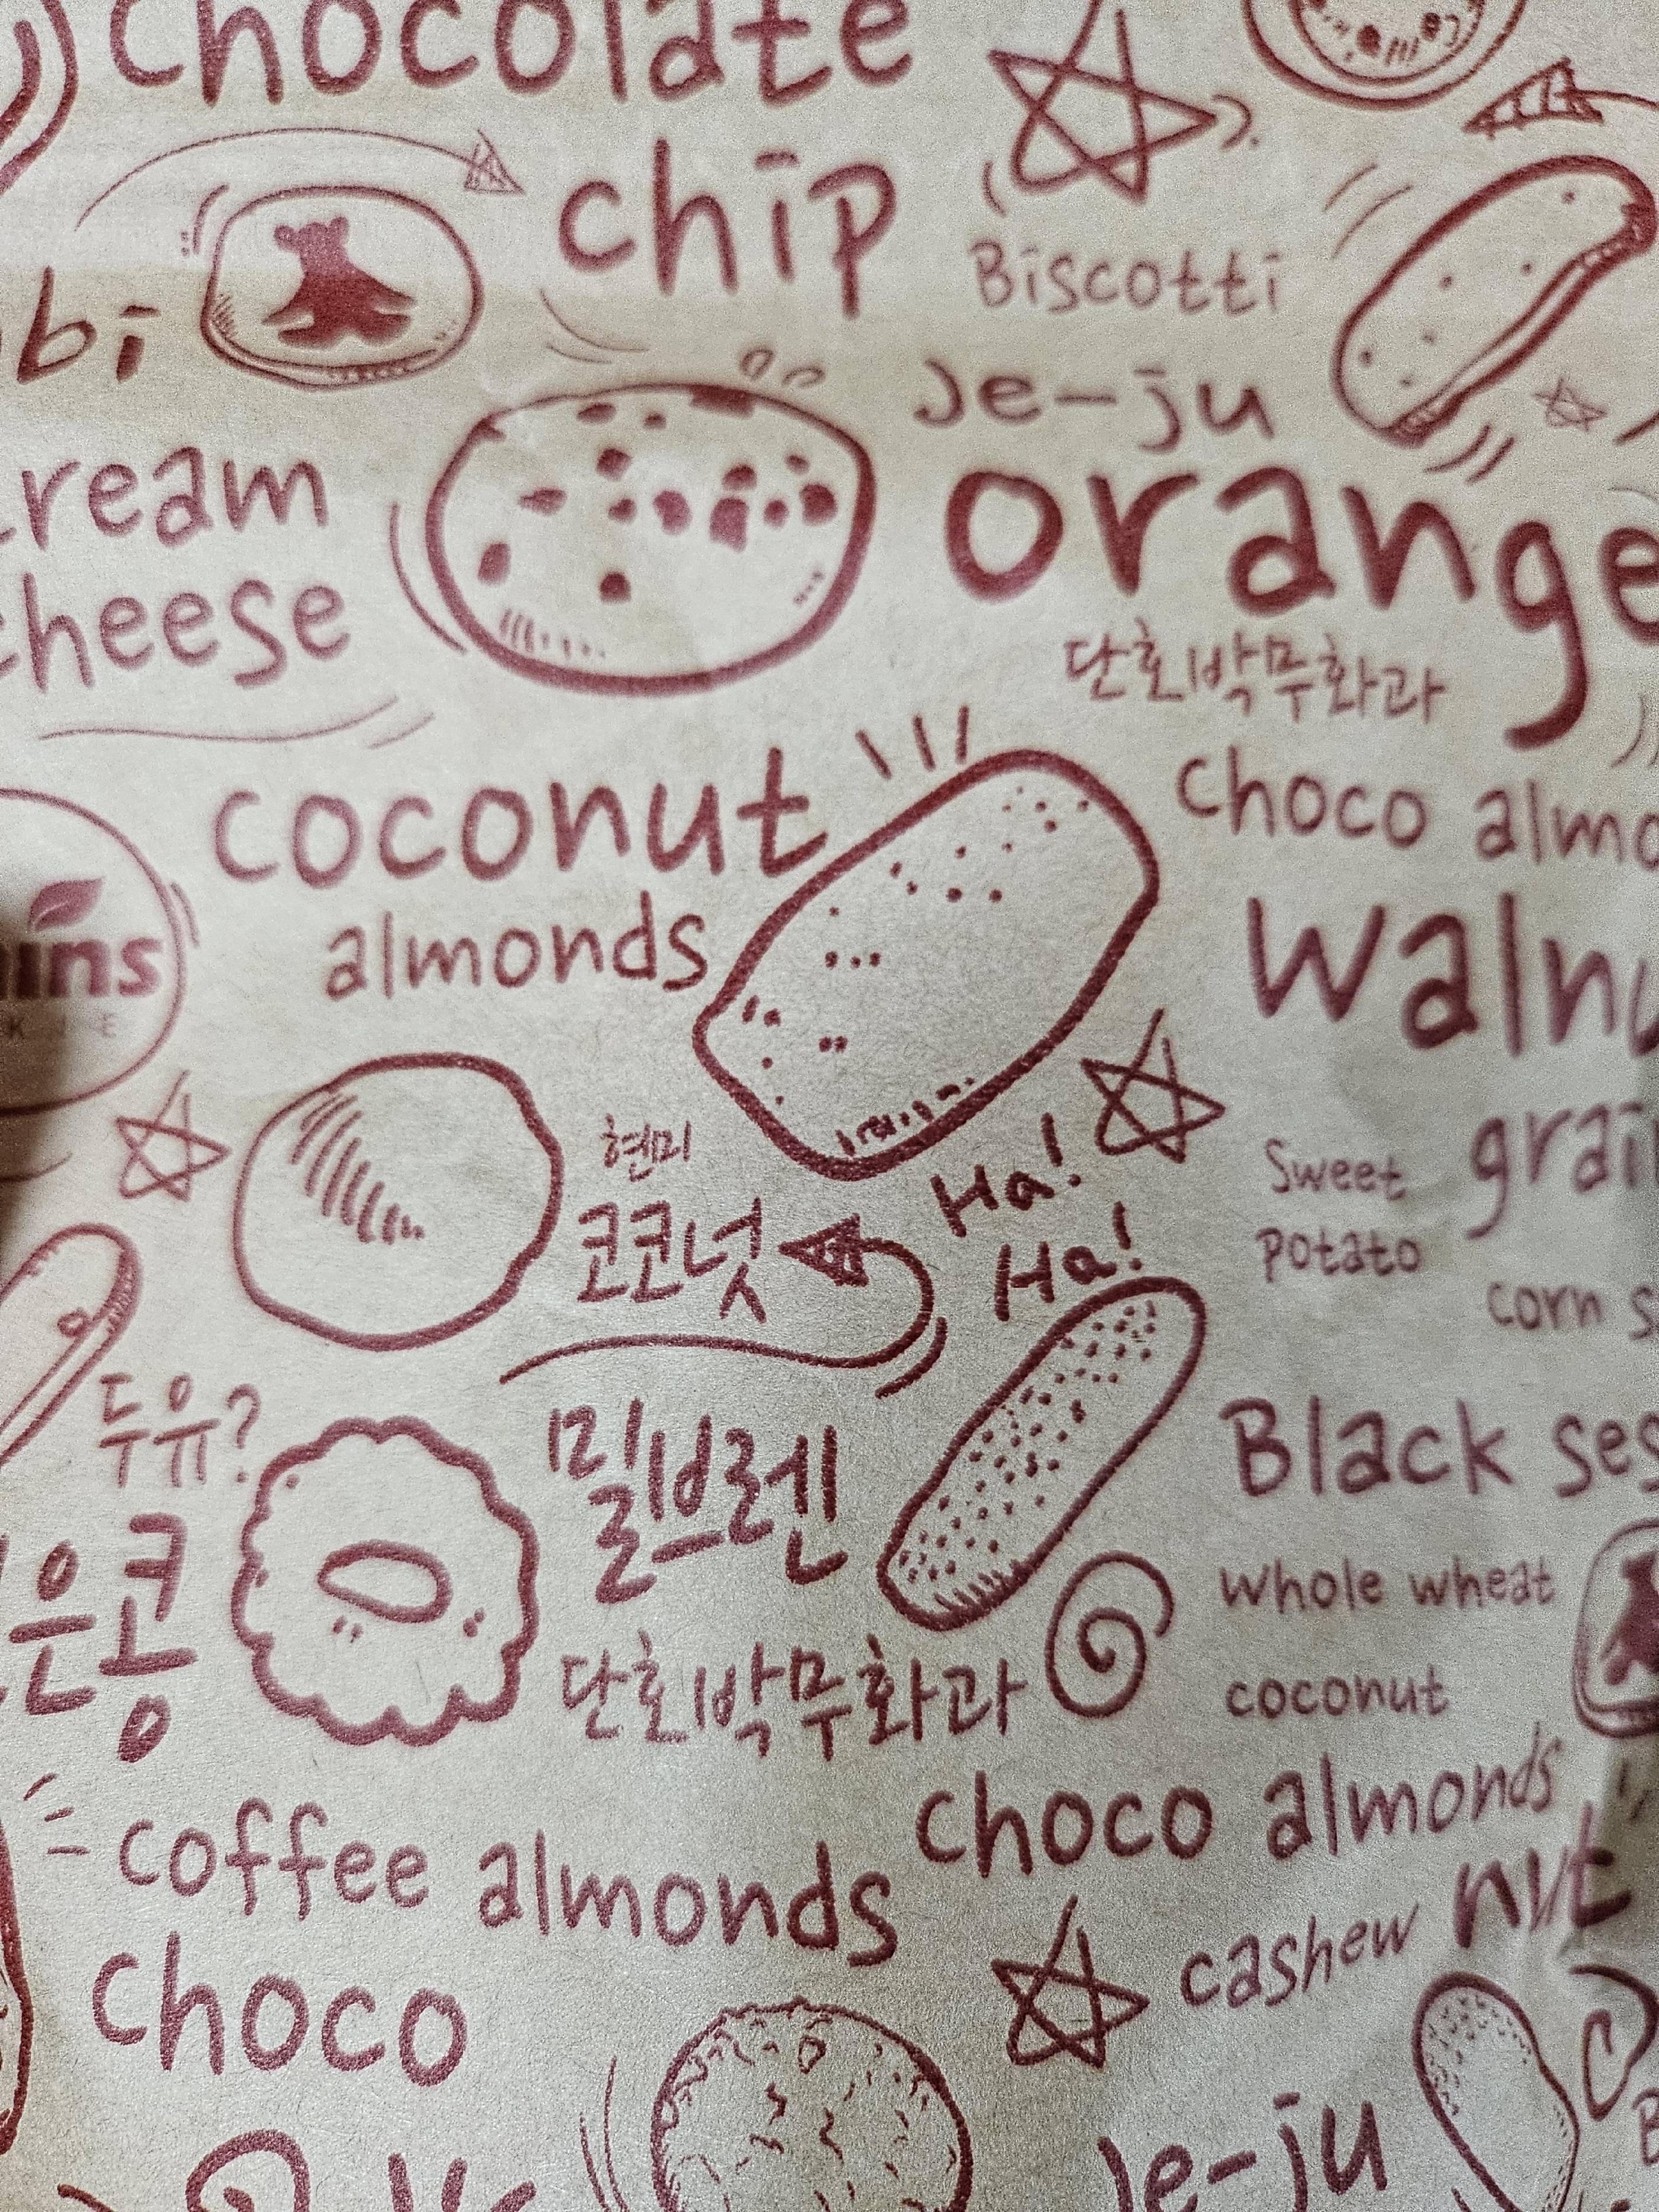 chocolate
chip
Biscotti
je-ju
orange
cream
cheese
단호박무화과
coconut
almonds
choco
현미
코코넛
Ha!
Ha!
Sweet
potato
corn
두유?
밀브렌
Black
whole wheat
coconut
단호박무화과
coffee almonds
choco almonds
cashew nut
choco
Je-ju